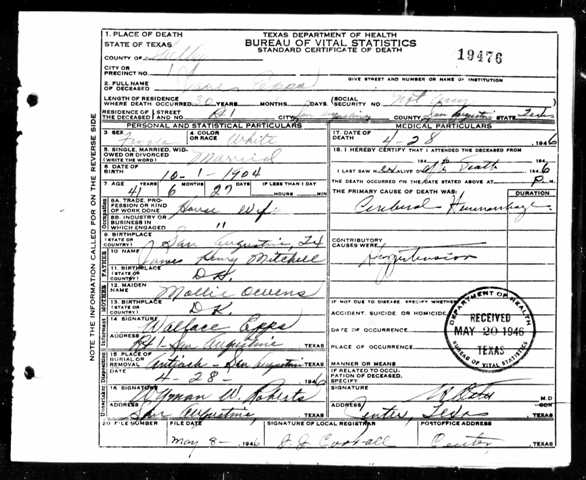 1. PLACE OF DEATH
STATE OF TEXAS
TEXAS DEPARTMENT OF HEALTH
BUREAU OF VITAL STATISTICS
STANDARD CERTIFICATE OF DEATH
19476
COUNTY OF Shelby
CITY OR PRECINCT NO.
GIVE STREET AND NUMBER OR NAME OF INSTITUTION
2. FULL NAME OF DECEASED Epps
LENGTH OF RESIDENCE WHERE DEATH OCCURRED YEARS MONTHS DAYS
SOCIAL SECURITY NO. Not given
RESIDENCE OF THE DECEASED STREET NO. Rt 1 CITY San Augustine COUNTY San Augustine STATE Tex
PERSONAL AND STATISTICAL PARTICULARS
MEDICAL PARTICULARS
3 SEX Female 4 COLOR OR RACE White
17. DATE OF DEATH 4-28 1946
5. SINGLE, MARRIED, WIDOWED OR DIVORCED (WRITE THE WORD) Married
18. I HEREBY CERTIFY THAT I ATTENDED THE DECEASED FROM
6 DATE OF BIRTH 10-1-1904
I LAST SAW H ALIVE Death 1946
7 AGE 41 YEARS 6 MONTHS 27 DAYS IF LESS THAN 1 DAY HOURS MIN
THE DEATH OCCURRED ON THE DATE STATED ABOVE AT P M
8A. TRADE, PROFESSION OR KIND OF WORK DONE House Wf.
THE PRIMARY CAUSE OF DEATH WAS: DURATION
Cerebral Hemmorrhage
8B. INDUSTRY OR BUSINESS IN WHICH ENGAGED " "
9. BIRTHPLACE (STATE OR COUNTRY) San Augustine, Tx
CONTRIBUTORY CAUSES WERE:
Hypertension
10 NAME James Henry Mitchell
11. BIRTHPLACE (STATE OR COUNTRY) D.K.
12. MAIDEN NAME Mollie Owens
IF NOT DUE TO DISEASE, SPECIFY WHETHER:
13. BIRTHPLACE (STATE OR COUNTRY) D.K.
ACCIDENT, SUICIDE OR HOMICIDE
14 SIGNATURE Wallace Epps
DATE OF OCCURRENCE
ADDRESS Rt 1 - San Augustine TEXAS
PLACE OF OCCURRENCE
15. PLACE OF BURIAL OR REMOVAL Antioch - San Augustine TEXAS
MANNER OR MEANS
4-28- 1946
IF RELATED TO OCCUPATION OF DECEASED, SPECIFY
16 SIGNATURE Wyman W. Roberts
SIGNATURE M.D.
ADDRESS San Augustine, TEXAS
ADDRESS Center, Texas TEXAS
20 FILE NUMBER FILE DATE May 8- 1946
SIGNATURE OF LOCAL REGISTRAR
POSTOFFICE ADDRESS Center, TEXAS
DEPARTMENT OF HEALTH
RECEIVED
MAY 20 1946
TEXAS
BUREAU OF VITAL STATISTICS
NOTE THE INFORMATION CALLED FOR ON THE REVERSE SIDE